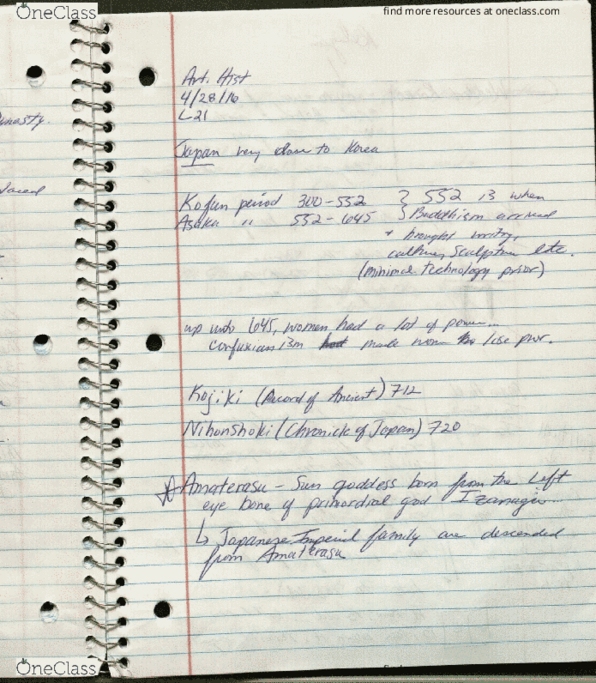 OneClass
find more resources at oneclass.com
Art. Hist
4/28/16
L21
Japan very close to Korea
Kofun period 300-552 } 552 is when
Asuka " 552-645 } Buddhism arrived
+ brought writing,
culture, Sculpture etc.
(minimal technology prior)
up unto 645, women had a lot of power...
confuxianism made women lose pwr.
Kojiki (Record of Ancient) 712
Nihonshoki (Chronicle of Japan) 720
Amaterasu - Sun goddess born from the left
eye bone of primordial god Izanagi...
↳ Japanese Imperial family are descended
from Amaterasu
OneClass